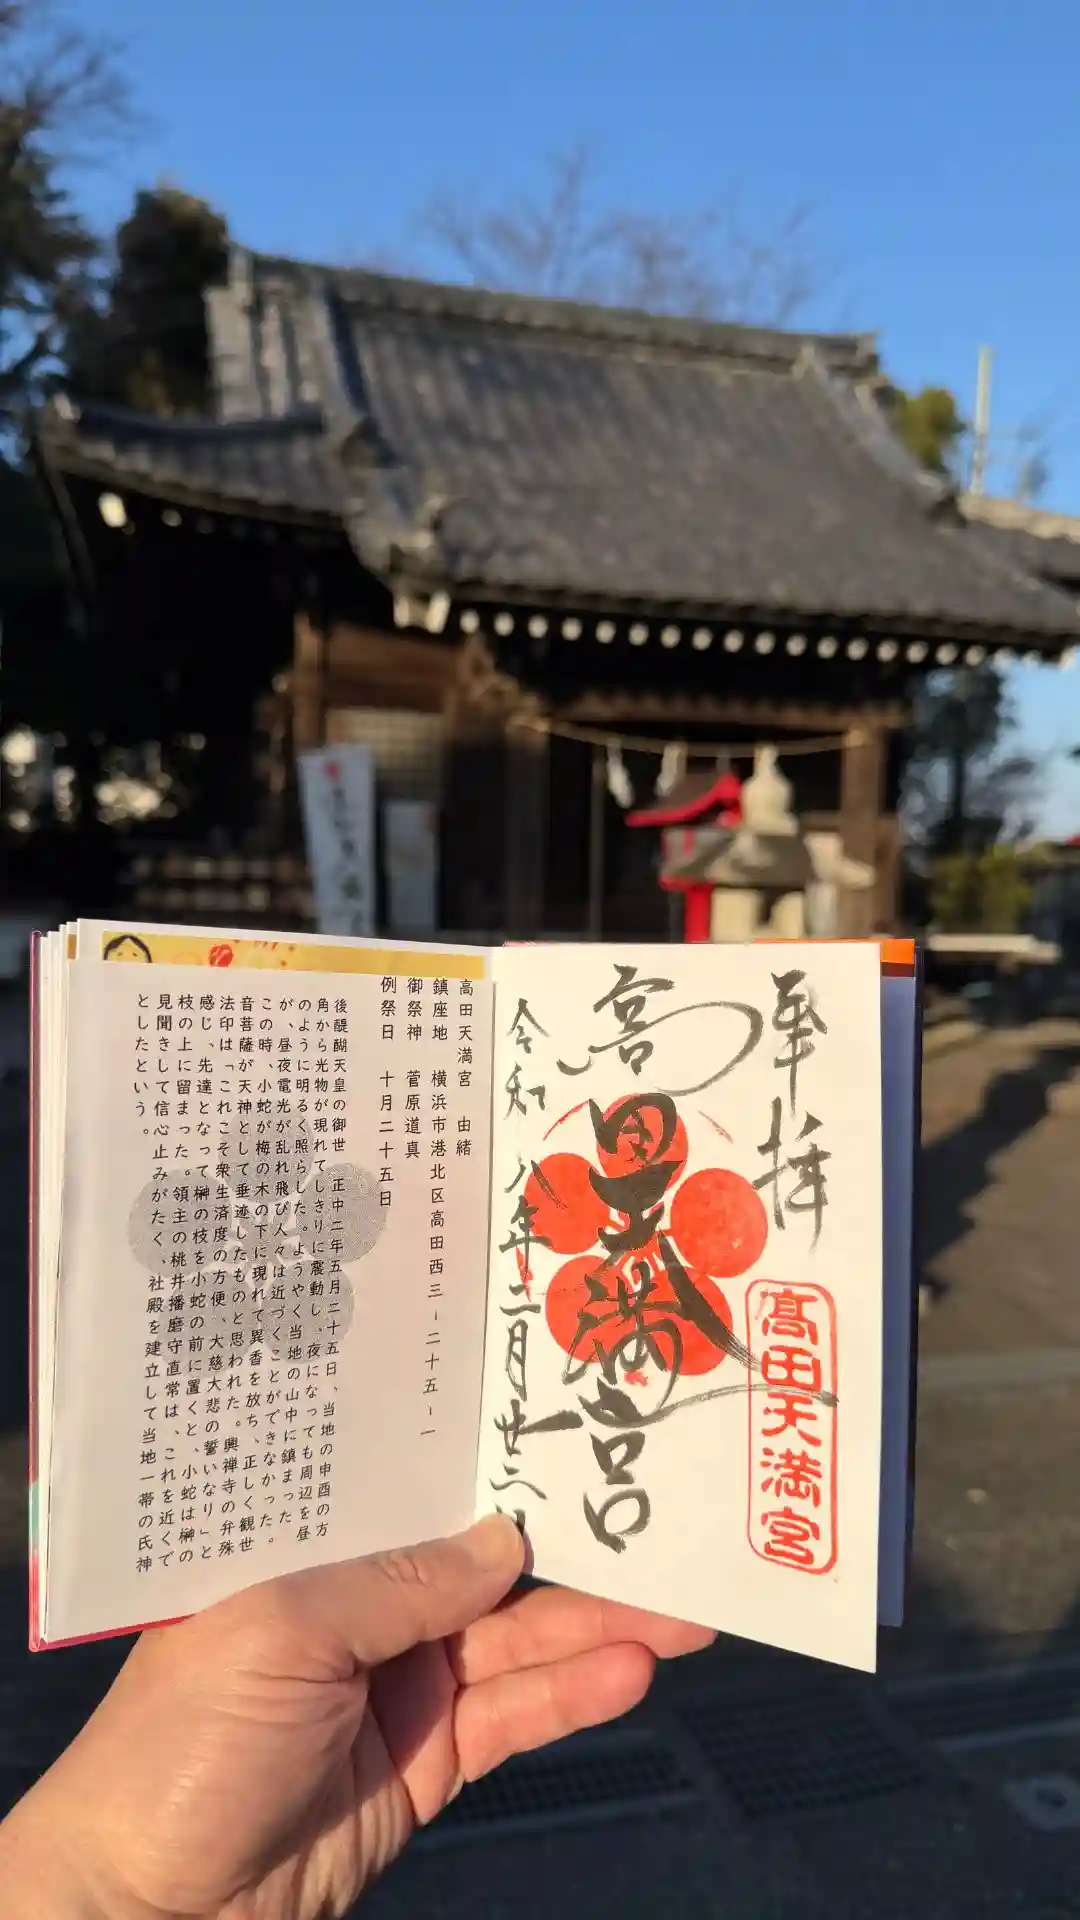 奉拝
高田天満宮
高田天満宮
令和八年二月廿二日
高田天満宮 由緒
鎮座地 横浜市港北区高田西三ー二十五ー一
御祭神 菅原道真
例祭日 十月二十五日
後醍醐天皇の御世 正中二年五月二十五日、当地の申酉の方
角から光物が現れてしきりに震動し、夜になっても周辺を昼
のように明るく照らした。ようやく当地の山中に鎮まった
が、昼夜電光が乱れ飛び人々は近づくことができなかった。
この時、小蛇が梅の木の下に現れて異香を放ち、正しく観世
音菩薩が天神として垂迹したものと思われた。興禅寺の弁殊
法印は「これこそ衆生済度の方便、大慈大悲の誓いなり」と
感じ、先達となって榊の枝を小蛇の前に置くと、小蛇は榊の
枝の上に留まった。領主の桃井播磨守直常は、これを近くで
見聞きして信心止みがたく、社殿を建立して当地一帯の氏神
としたという。